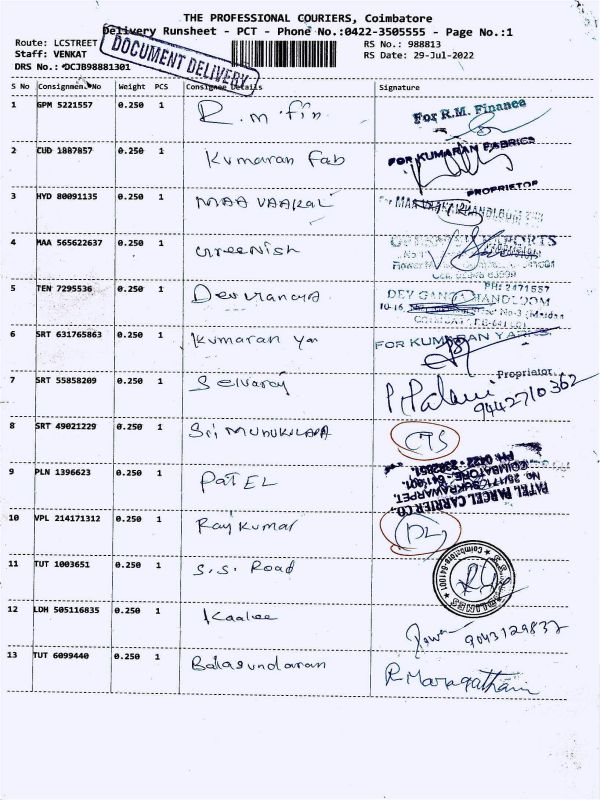 THE PROFESSIONAL COURIERS, Coimbatore
Delivery Runsheet - PCT - Phone No.:0422-3505555 - Page No.:1
Route: LCSTREET
RS No.: 988813
Staff: VENKAT
RS Date: 29-Jul-2022
DRS No.: DCJB98881301
DOCUMENT DELIVERY
S No Consignment No Weight PCS Consignee Details Signature
1 GPM 5221557 0.250 1 R.m fin For R.M. Finance
2 CUD 1887857 0.250 1 Kumaran Fab FOR KUMARAN FABRICS
PROPRIETOR
3 HYD 80091135 0.250 1 MAA VAAKAI HANDLOOM
4 MAA 565622637 0.250 1 Greenish
5 TEN 7295536 0.250 1 PH: 2471557
DEV GANGA HANDLOOM
6 SRT 631765863 0.250 1 Kumaran Yan FOR KUMARAN YARNS
Proprietor
7 SRT 55858209 0.250 1 Selvaraj P Palani
9442710362
8 SRT 49021229 0.250 1 Sri CTS
9 PLN 1396623 0.250 1 PATEL PATEL PARCEL CARRIER CO.,
No. 26/171 SUKRAWARPET,
COIMBATORE - 641001.
10 VPL 214171312 0.250 1 Raj Kumar DL
11 TUT 1003651 0.250 1 S.S. Road
12 LDH 505116835 0.250 1 Kaalee 9043129837
13 TUT 6099440 0.250 1 Balasundaran R Maragatham